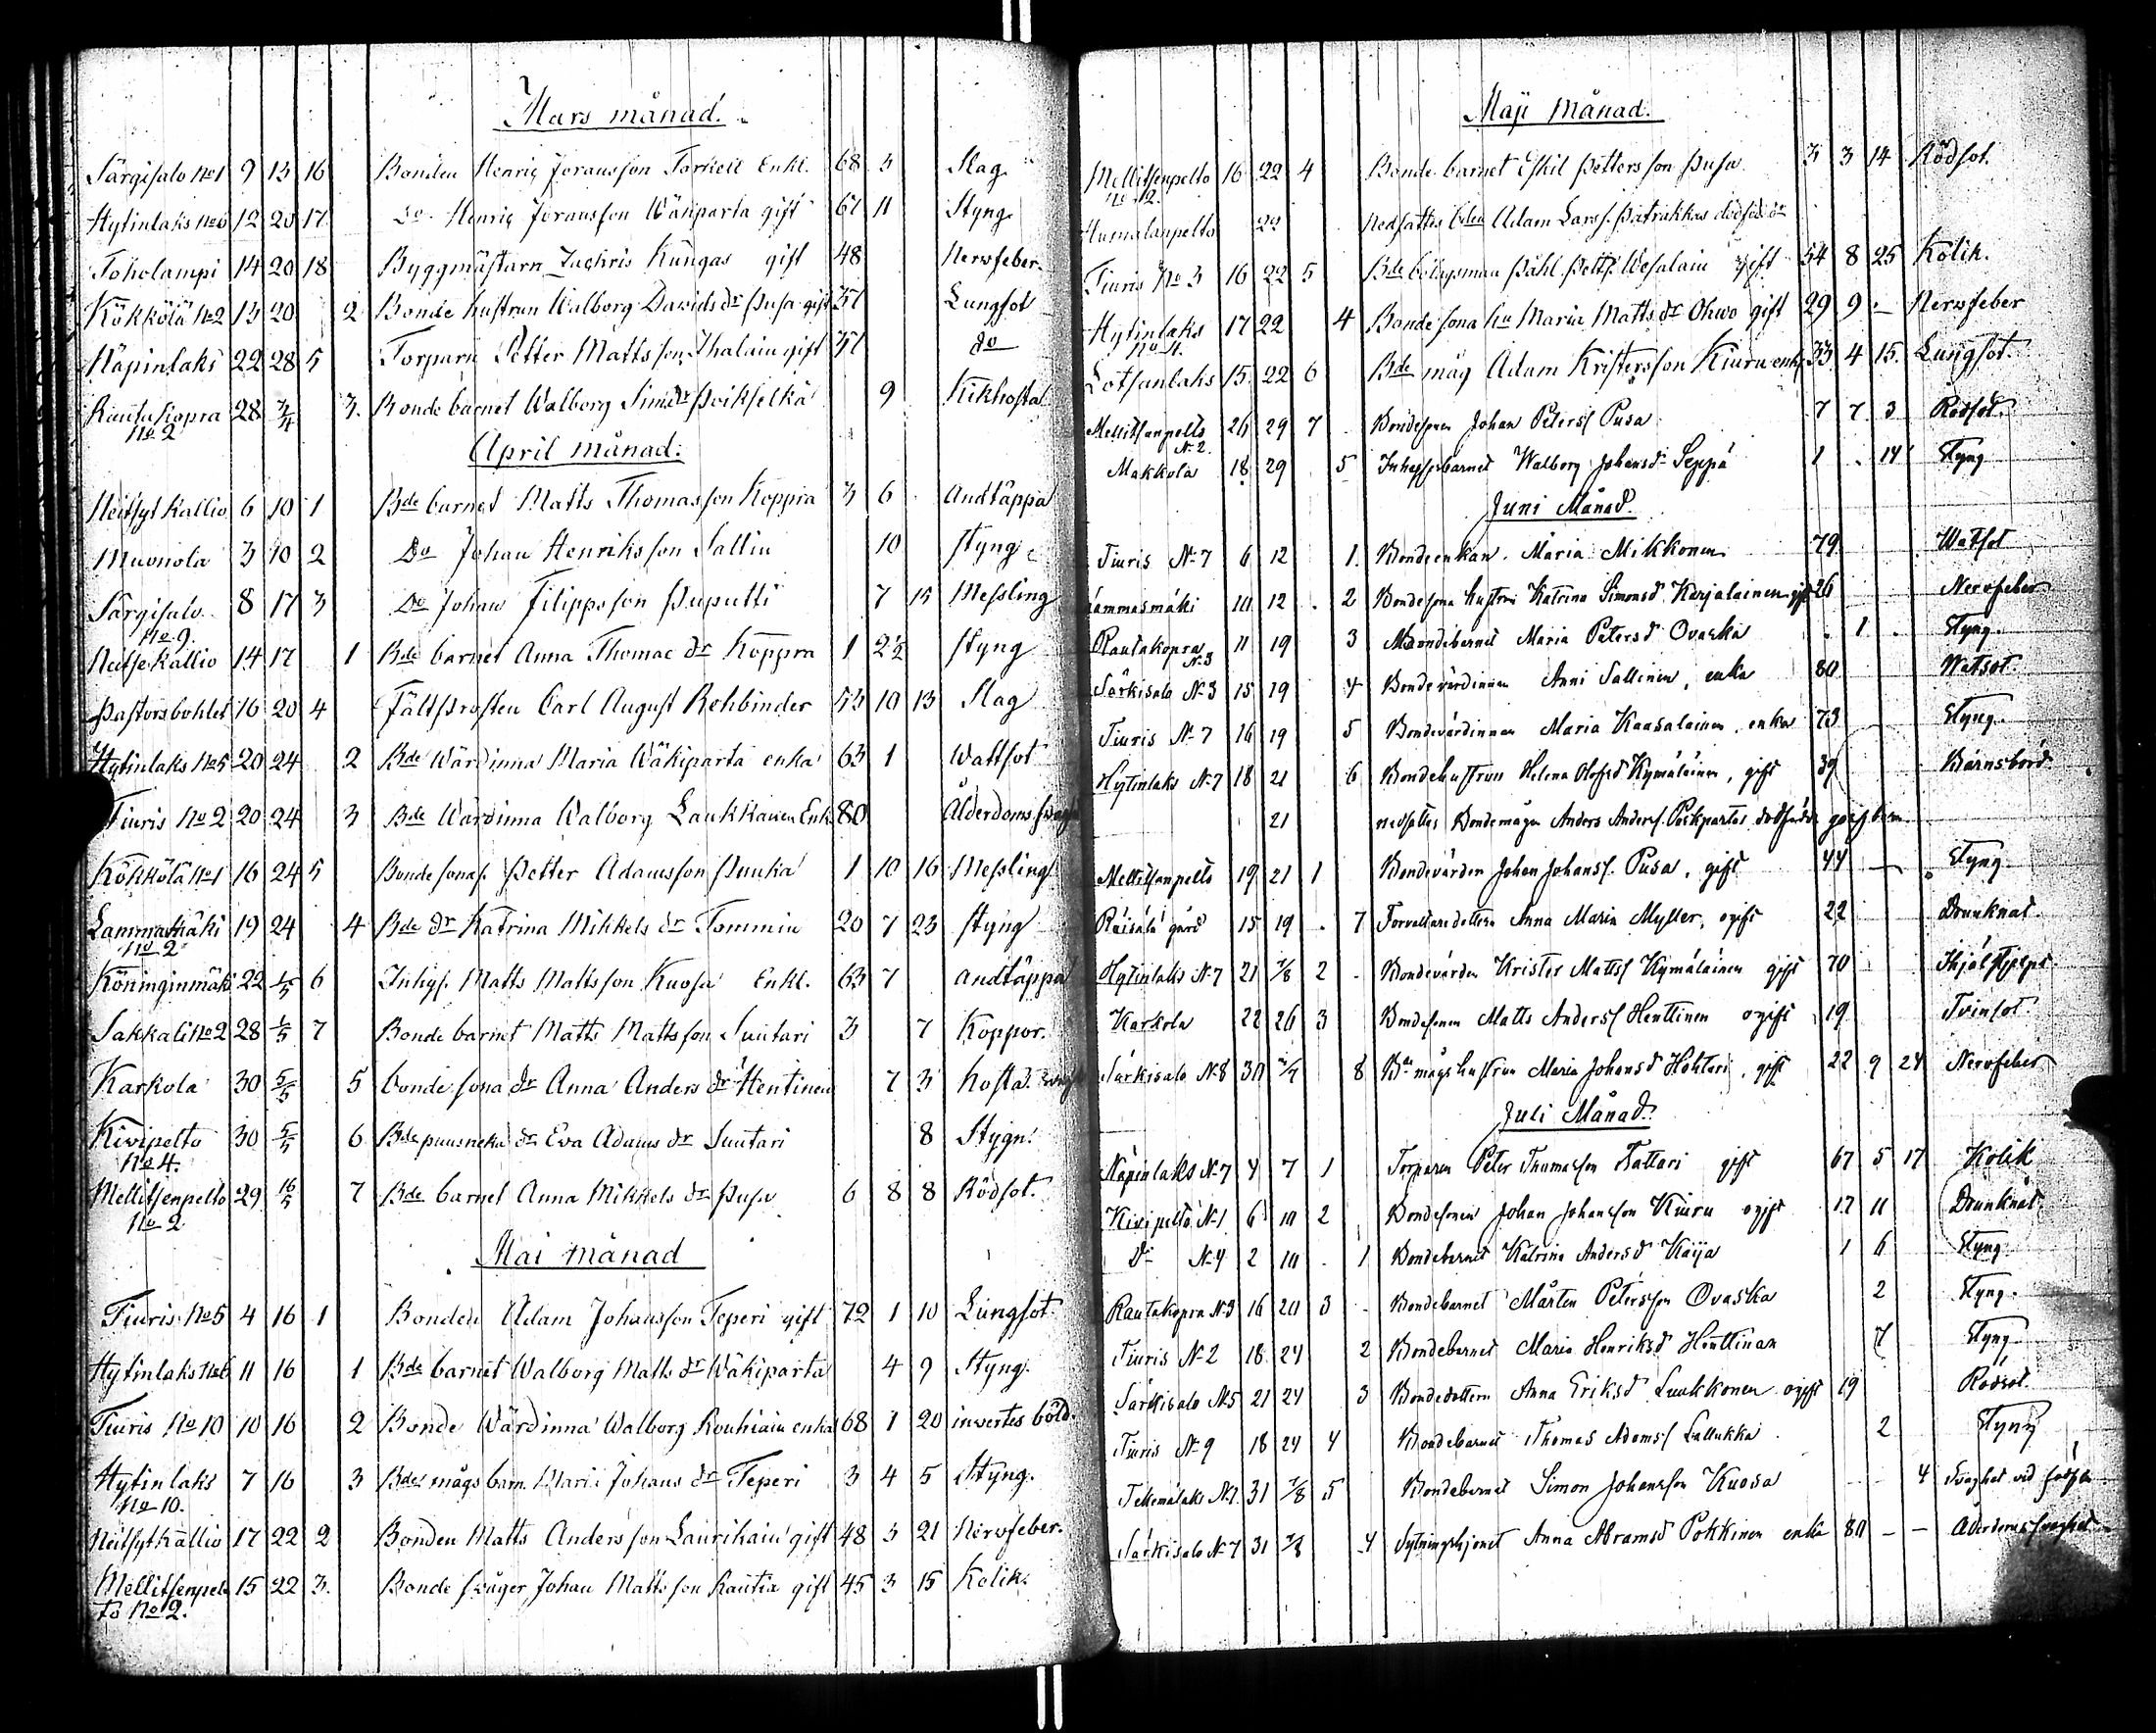 Mars månad.
Särgisalo No1 9 13 16 Bonden Henric Joransson Torkell Enkl. 68 3 Slag
Hytinlaks No6 12 20 17 Do Henric Joransson Wäkiparta gift 67 11 Styng
Toholampi 14 20 18 Byggmästarn Zachris Kungas gift 48 Nerwfeber.
Kökkölä No2 13 20 2 Bonde hustrun Walborg Davids dr Pusa gift 57 Lungsot
Näpinlaks 22 28 5 Torparn Petter Mattsson Ihalain gift 57 do
Rautu Kopra 28 3/4 3. Bonde barnet Walborg Sims dr Poikselkä 9 Kikhosta
No 2
April månad.
Neitsyt Kallio 6 10 1 Bde barnet Matts Thomasson Koppra 3 6 Andtäppa
Muonola 3 10 2 Do Johan Henriksson Sallin 10 styng
Särgisalo 8 17 3 Do Johan Filippsson Puputti 7 15 Messling
No 9.
Neitse Kallio 14 17 1 Bde barnet Anna Thomae dr Koppra 1 2½ styng
Pastorsbohlet 16 20 4 Fältprosten Carl August Rehbinder 53 10 13 Slag
Hytinlaks No5 20 24 2 Bde Wärdinna Maria Wäkiparta enka 63 1 Wattsot
Tiuris No 2 20 24 3 Bde Wärdinna Walborg Laukkanen Enk. 80 Ålderdoms
Kökkölä No1 16 24 5 Bonde sonas. Petter Adamsson Punka 1 10 16 Messling
Lammasmäki 19 24 4 Bde dr Katrina Mikkels dr Tommin 20 7 23 styng
No 2
Köninginmäki 22 1/5 6 Inhys. Matts Mattsson Kuosa Enkl. 63 7 andtäppa
Sakkali No 2 28 1/5 7 Bonde barnet Matts Mattsson Suutari 3 7 Koppor.
Karkola 30 5/5 5 bonde sona dr Anna Anders dr Hentinen 7 3 hosta
Kivipelto 30 5/5 6 Bde dr Eva Adams dr Suutari 8 Stygn.
No 4.
Mellitsenpelto 29 16/5 7 Bde barnet Anna Mikkels dr Pusa 6 8 8 Rödsot.
No 2
Mai månad
Tiuris No 5 4 16 1 Bonden Adam Johansson Teperi gift 72 1 10 Lungsot
Hytinlaks No6 11 16 1 Bde barnet Walborg Matts dr Wäkiparta 4 9 Styng.
Tiuris No 10 10 16 2 Bonde Wärdinna Walborg Rouhiain enka 68 1 20 invertes böld.
Hytinlaks 7 16 3 Bde mågs barn Maria Johans dr Teperi 3 4 5 Styng.
No 10.
Neitsyt Kallio 17 22 2 Bonden Matts Andersson Laurikain gift 48 3 21 Nerwfeber.
Mellitsenpel 15 22 3. Bonde swåger Johan Mattsson Rautia gift 45 3 15 Kolik.
to No 2.
Maji Månad.
Mellitsenpelto 16 22 4 Bonde barnet Eskil Pettersson Pusa 3 3 14 Rödsot.
No 2.
Humalanpelto 22 Nedsattes Adam Larss. Patrikkas
Tiuris No 3 16 22 5 Bde Påhl Petts. Wesalain gift 54 8 25 Kolik.
Hytinlaks 17 22 4 Bonde sona hu Maria Matts dr Ohwo gift 29 9 - Nerwfeber
No 4.
Lotsanlaks 15 22 6 Bde måg Adam Kristersson Kiuru enkl 33 4 15. Lungsot.
Mellitsanpelto 26 29 7 Bondesonen Johan Peterss Pusa 7 7 3 Rödsot.
N 2.
Makkola 18 29 5 Inhysesbarnet Walborg Johansd. Seppä 1 . 14 Styng
Juni Månad.
Tiuris No 7 6 12 1. Bondeenkan. Maria Mikkonen 79 Watsot
Lammasmäki 10 12 . 2 Bondesona hustrun Katrina Simonsd. Karjalainen gift 26 Nervfeber
Rautakopra 11 19 3 Bondebarnet Maria Petersd Ovaska . 1 . Styng.
N. 3
Särkisalo N. 3 15 19 4 Bondevärdinnan Anni Sallinen, enka 80 Watsot
Tiuris No 7 16 19 5 Bondevärdinnan Maria Kaasalainen enka 73 Styng
Hytinlaks No 7 18 21 6 Bondehustrun Helena Olofsd Kymäläinen, gift 39 Barnsbörd
21 nedsattes Bondemågen Anders Anders. Poikpartas dödfödda
Mellitsanpelto 19 21 1 Bondevärden Johan Johanss. Pusa, gift 44 Styng
Räisälä gård 15 19 . 7 Forvaltaredottern Anna Maria Mysler, ogift 22 Drunknat
Hytinlaks No 7 21 7/8 2 - Bondevärden Krister Mattss Kymäläinen gift 70
Karkola 22 26 3 Bondesonen Matts Anderss Henttinen ogift 19 Tvinsot
Särkisalo No 8 30 8 Bde mågs hustrun Maria Johansd Hohtari, gift 22 9 24 Nervfeber
Juli Månad.
Näpinlaks No 7 4 7 1 Torparen Peter Thomasson Tattari gift 67 5 17 Kolik
Kivipelto No 1 6 10 2 Bondesonen Johan Johansson Kiuru ogift 17 11 Drunknat
do No 4 2 10 . 1 Bondebarnet Katrina Andersd Käyä 1 6 Styng
Rautakopra No 3 16 20 3 Bondebarnet Mårten Petersson Ovaska 2 Styng.
Tiuris No 2 18 24 2 Bondebarnet Maria Henriksd Henttinan 7 Styng
Särkisalo No 5 21 24 3 Bondedottern Anna Eriksd Luukkonen ogift 19 Rödsot
Tiuris No 9 18 24 4 Bondebarnet Thomas Adamss Lallukka 2 Styng
31 7/8 5 Bondebarnet Simon Johansson Kuosa 4 Svaghet vid
Särkisalo No 7 31 7/8 4 Sytningshjonet Anna Abramsd Pokkinen enka 80 - - Ålderdomssvaghet